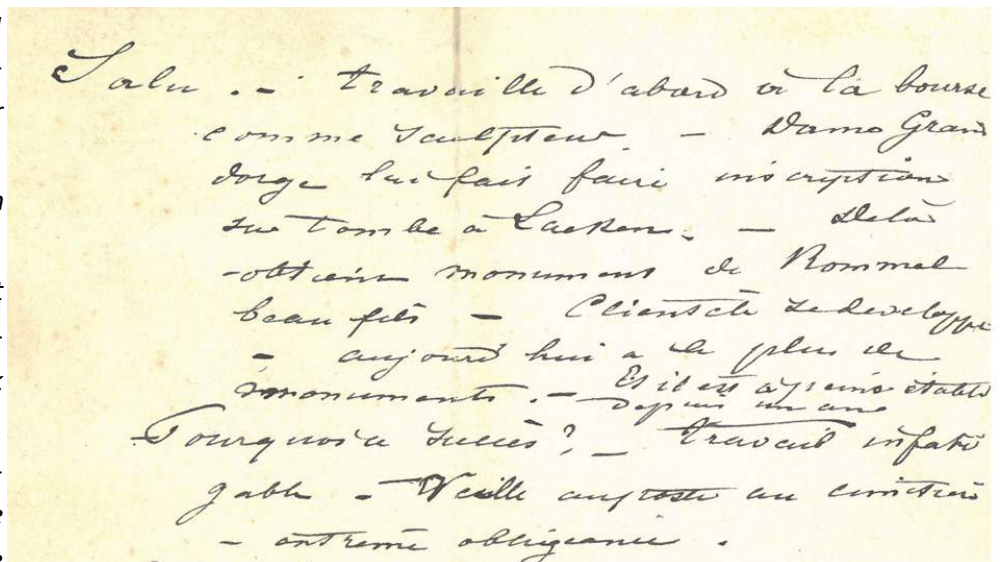 Salu. - travaille d'abord à la bourse
comme sculpteur. - Dame Gran
dorge lui fait faire inscription
sur tombe à Laeken. - Delà
obtient monument de Rommel
beau fils - Clientèle se developpe
- aujourd'hui a le plus de
monuments. - Et il est à peine établi
depuis un an
Pourquoi a succès? - travail infati
gable - Veille au poste au cimetière
- extrême obligeance.